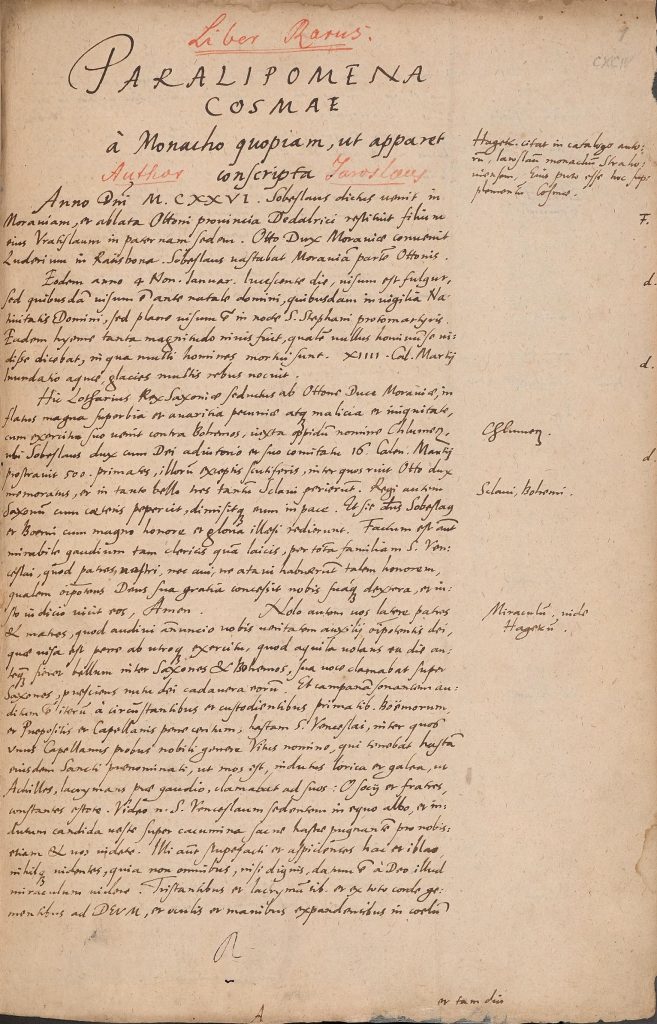 Liber Rarus.
PARALIPOMENA
COSMAE
à Monacho quopiam, ut apparet
Author conscripta Jaroslaus
Anno Dni M.CXXVI. Sobeslaus dictus uenit in
Morauiam, et ablata Ottoni prouincia Dedalrici restituit filium
eius Vratislaum in paternam sedem. Otto Dux Morauiæ conuenit
Luderium in Ratisbona. Sobeslaus uastabat Morauiā partē Ottonis.
Eodem anno 4 Non. Januar. lucescente die, uisum est fulgur,
sed quibusdā uisum ē ante natale domini, quibusdam in uigilia Na-
tiuitatis Domini, sed plane uisum ē in nocte S. Stephani protomartyris.
Eadem hyems tanta magnitudo niuis fuit, quale nullus hominū se ui-
disse dicebat, in qua multi homines mortui sunt. XIIII. Cal. Martij
Inundatio aquæ, glacies multis rebus nocuit.
Hic Lotharius Rex Saxoniæ seductus ab Ottone Duce Morauiæ, in-
flatus magna superbia et auaritia pecuniæ atq malicia et iniquitate,
cum exercitu suo uenit contra Bohemos, iuxta oppidū nomine Chlumen,
ubi Sobeslaus dux cum Dei adiutorio et suo comitatu 16 Calen. Martij
prostrauit 500. primates, illorū exceptis scutiferis, inter quos ruit Otto dux
memoratus, et in tanto bello tres tantū Sclaui perierunt. Regi autem
Saxonū cum cæteris pepercit, dimisitq eum in pace. Et sic dūs Sobeslaq
et Boemi cum magno honore et gloria illesi redierunt. Factum est aūt
mirabile gaudium tam clericis quā laicis, per totā familiam S. Ven-
ceslai, quod patres nostri, nec aui, ne ataui habuerūt talem honorem,
qualem oīpotens Deus sua gratia concessit nobis suāq dextera, et iu-
sto iudicio uicit eos, Amen. Nolo autem uos latere patres
& matres, quod audiui annuncio nobis ueritatem auxilij oīpotentis dei,
quæ uisa est pene ab utroq exercitu, quod aquila uolans ea die an-
teq̄ fieret bellum inter Saxones & Bohemos, sua uoce clamabat super
Saxones, præsciens nutu dei cadauera eorū. Et campanā sonantem au-
ditum ē iterū à circustantibus et custodientibus primatib. Boëmorum,
et Præpositis et Capellanis pene centum, hastam S. Venceslai, inter quos
unus Capellanus probus nobili genere Vitus nomine, qui tenebat hastā
eiusdem Sancti prænominati, ut mos est, indutus lorica et galea, ut
Achilles, lacrymans præ gaudio, clamabat ad suos: O socij et fratres,
constantes estote. Video n. S. Venceslaum sedentem in equo albo, et in-
dutum candida ueste super cacumina sacræ hastæ pugnantē pro nobis:
etiam & uos uidete. Illi aūt stupefacti et aspicientes hac et illac
nihilq uidentes, quia non omnibus, nisi dignis, datum ē à Deo illud
miraculum uidere. Tristantibus et lacrymātib. et ex toto corde ge-
mentibus ad DEVM, et oculis et manibus expandentibus in coelū
et tam diu
A
Hagek. citat in catalogo auto-
rū, Jaroslaū monachum Straho-
uiensem. Eius puto esse hoc sup-
plementū Cosmæ.
Chlumen
Sclaui, Bohemi.
Miraculū, uide
Hagekū.
CXCIV
F.
d.
d.
d